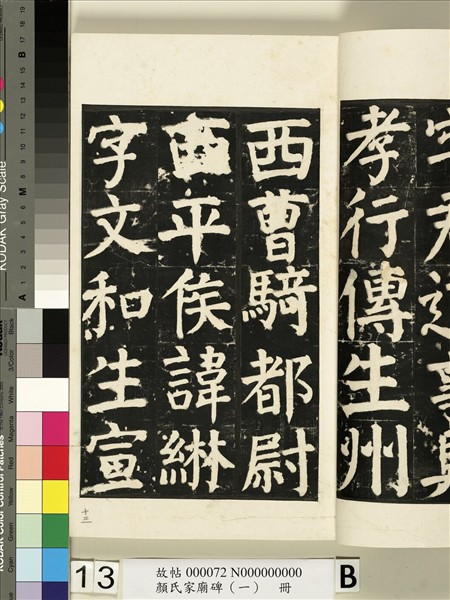 字君道事具
孝行傳生州
西曹騎都尉
西平侯諱綝
字文和生宣
十三
13
故帖 000072 N000000000
顏氏家廟碑（一） 冊
B
KODAK Gray Scale
A 1 2 3 4 5 6 M 8 9 10 11 12 13 14 15 B 17 18 19
KODAK Color Control Patches
Black
3/Color
White
Magenta
Red
Yellow
Green
Cyan
Blue